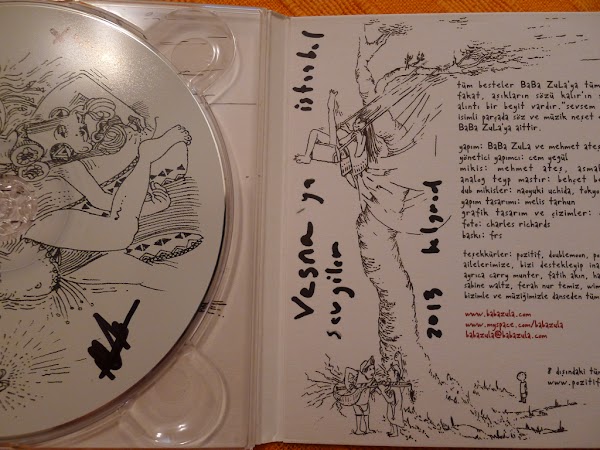 Vesna'ya
sevgiler
2013
tüm besteler BaBa ZuLa'ya tüm
fakat, aşıkların sözü kalır'ın s
alıntı bir beyit vardır."sevsem
isimli parçada söz ve müzik neşet
BaBa ZuLa'ya aittir.
yapım: BaBa ZuLa ve mehmet ateş
yönetici yapımcı: cem yegül
mikis: mehmet ateş, asmal
analog teyp mastır: behçet be
dub mikisler: naoyuki uchida, tokyo
yapım tasarımı: melis tarhun
grafik tasarım ve çizimler:
foto: charles richards
baskı: frs
teşekkürler: pozitif, doublemoon, po
ailelerimize, bizi destekleyip ina
ayrıca carry munter, fatih akın, ha
sabine waltz, ferah nur temiz, wim
bizimle ve müziğimizle danseden tüm
www.babazula.com
www.myspace.com/babazula
babazula@babazula.com
dışındaki tü
www.pozitif